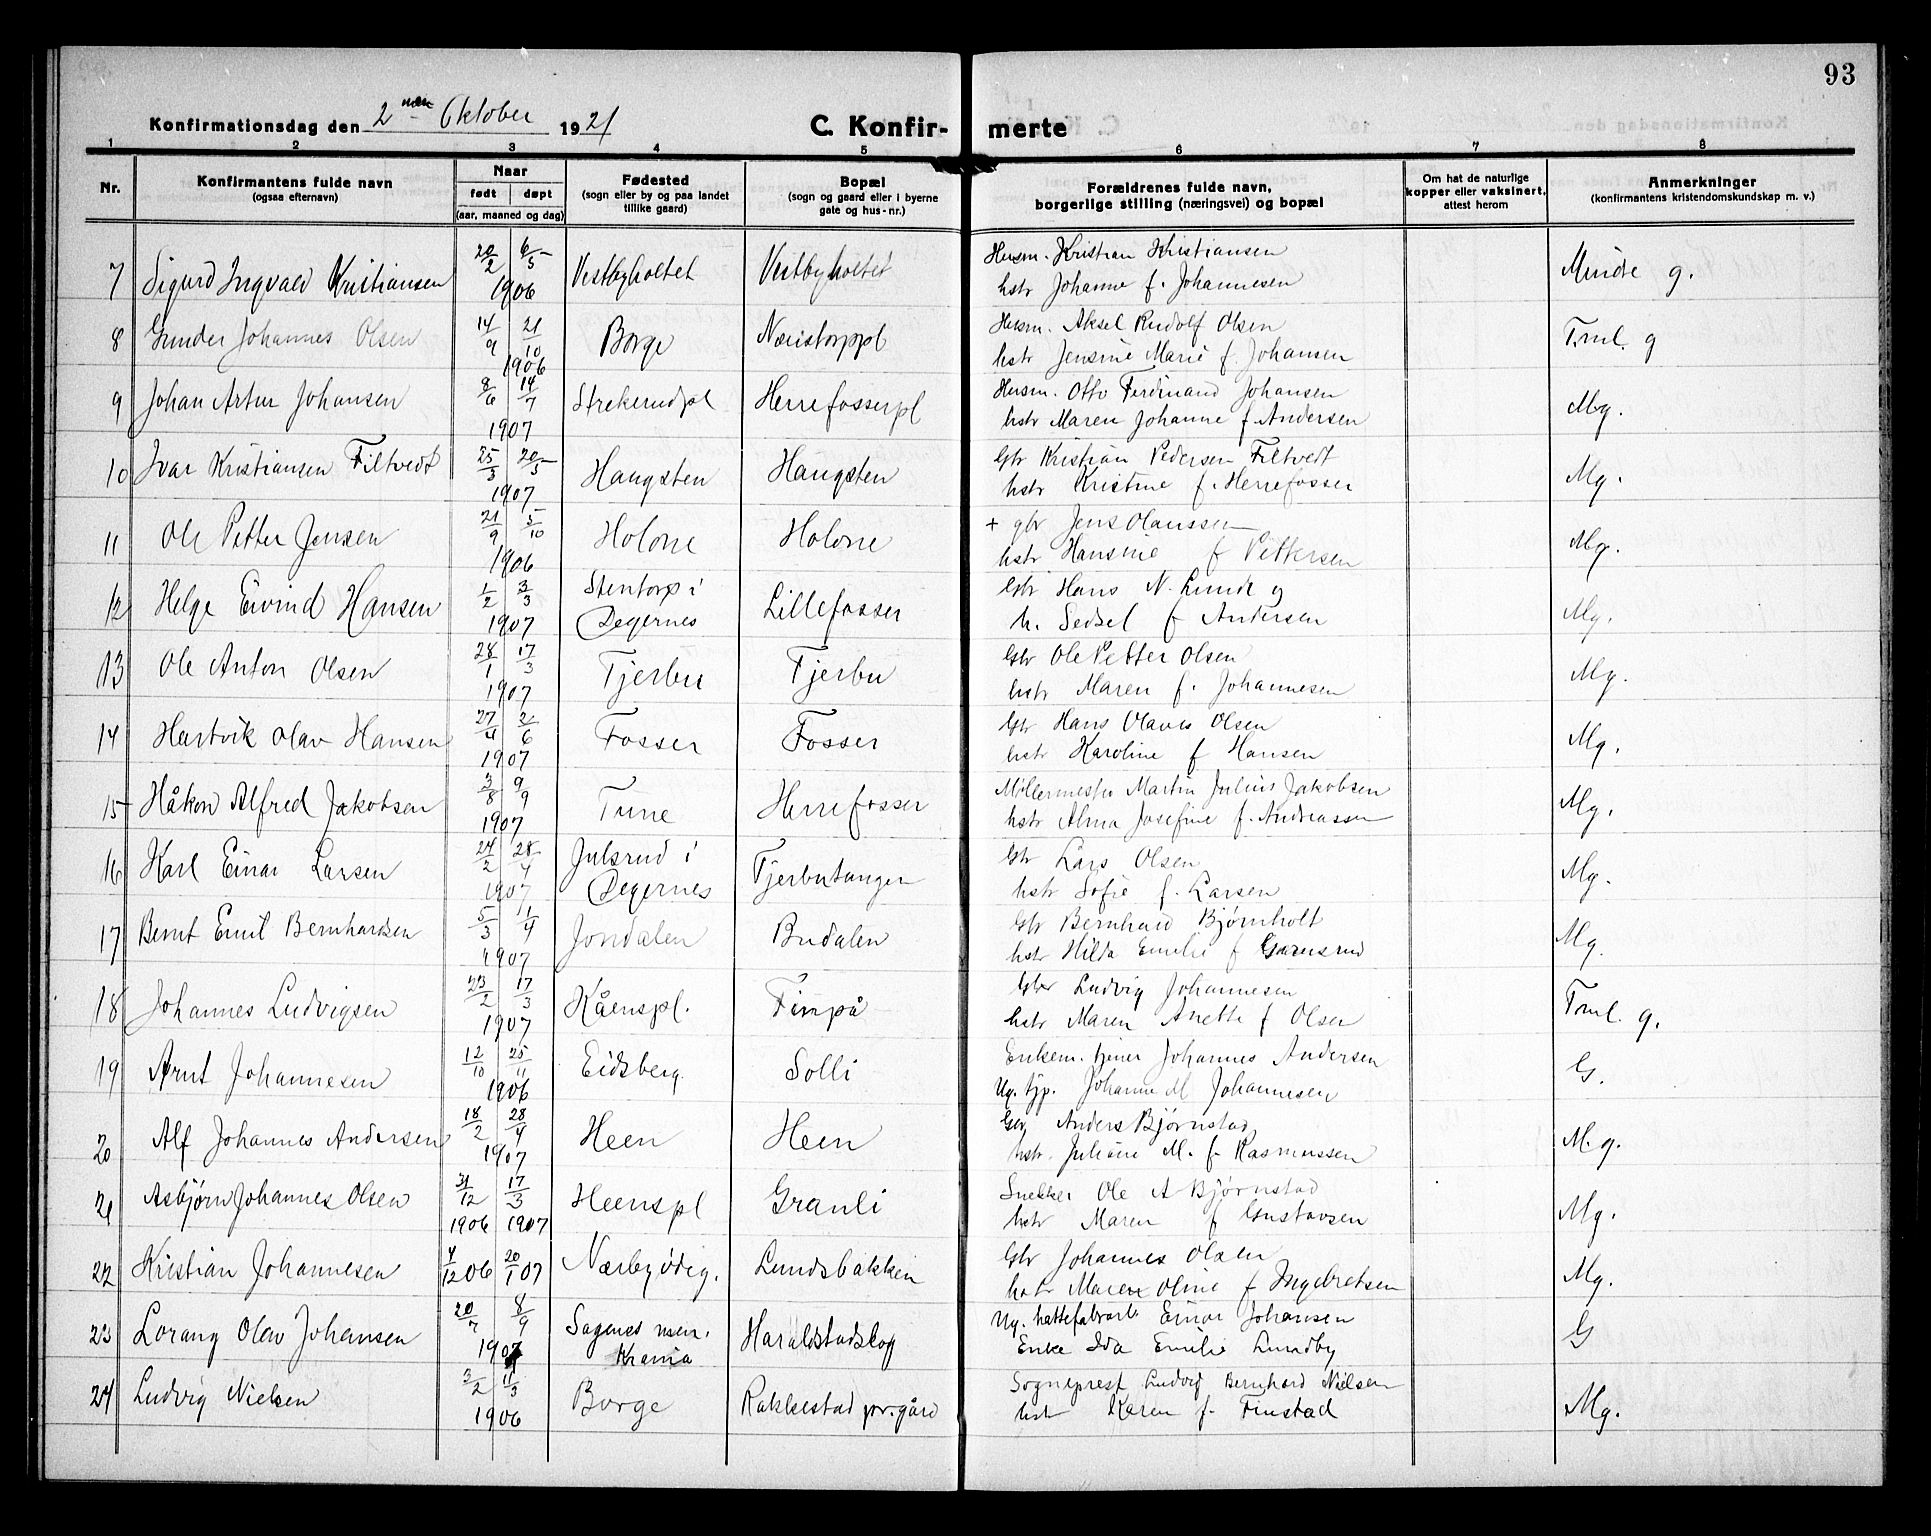 93
Konfirmationsdag den 2 nen Oktober 1921
C. Konfirmerte
1 2 3 4 5 6 7 8
Nr.
Konfirmantens fulde navn
(ogsaa efternavn)
Naar
født døpt
(aar, maaned og dag)
Fødested
(sogn eller by og paa landet
tillike gaard)
Bopæl
(sogn og gaard eller i byerne
gate og hus-nr.)
Forældrenes fulde navn,
borgerlige stilling (næringsvei) og bopæl
Om hat de naturlige
kopper eller vaksinert,
attest herom
Anmerkninger
(konfirmantens kristendomskundskap m. v.)
7 Sigurd Ingvald Kristiansen 20/2 6/5 1906 Vestbyholtet Vestbyholtet
Husm. Kristian Kristiansen
hstr Johanne f. Johannesen
Mindre g.
8 Gunder Johannes Olsen 14/9 21/10 1906 Borge
Husm. Aksel Rudolf Olsen
hstr Jensine Marie f. Johansen
T.ml. g
9 Johan Artur Johansen 8/6 14/7 1907 Strekerudpl Herrefosserpl
Husm. Otto Ferdinand Johansen
hstr Maren Johanne f Andersen
Mg.
10 Ivar Kristiansen Filtvedt 25/3 20/5 1907 Haugsten Haugsten
Gbr Kristian Pedersen Filtvedt
hstr Kristine f. Herrefosser
Mg.
11 Ole Petter Jensen 21/9 5/10 1906 Holone Holone
+ gbr Jens Olaussen
hstr Hansine f Pettersen
Mg.
12 Helge Eivind Hansen 1/2 3/3 1907 Stentorp i
Degernes Lillefosser
Gbr Hans N. Lunde og
h. Sedsel f Andersen
Mg.
13 Ole Anton Olsen 28/1 17/3 1907 Tjerbu Tjerbu
Gbr Ole Petter Olsen
hstr Maren f. Johannesen
Mg.
14 Hartvik Olav Hansen 27/4 2/6 1907 Fosser Fosser
Gbr Hans Olaves Olsen
hstr Karoline f Hansen
Mg.
15 Håkon Alfred Jakobsen 3/8 9/9 1907 Tune Herrefosser
Møllermester Martin Julius Jakobsen
hstr Alma Josefine f. Andreassen
Mg.
16 Karl Einar Larsen 24/2 28/4 1907 Julsrud i
Degernes Tjerbutangen
Gbr Lars Olsen
hstr Sofie f. Larsen
Mg.
17 Bernt Emil Bernhardsen 5/3 1/4 1907 Jondalen Budalen
Gbr Bernhard Bjørnholt
hstr Hilda Emilie f
Mg.
18 Johannes Ludvigsen 23/2 17/3 1907 Kåenspl. Fimpå
Gbr Ludvig Johannesen
hstr Maren Anette f Olsen
T.ml. g.
19 Arnt Johannesen 12/10 25/11 1906 Eidsberg Solli
Enkem. tjener Johannes Andersen
Ug. tjp. Johanne M Johannesen
G.
20 Alf Johannes Andersen 18/2 28/4 1907 Heen Heen
Gbr Anders Bjørnstad
hstr. Juliane M. f. Rasmussen
M.g.
21 Asbjørn Johannes Olsen 31/12 1906 17/3 1907 Heenspl Granli
Snekker Ole A Bjørnstad
hstr Maren f Gustavsen
Mg.
22 Kristian Johannesen 4/12 06 20/1 07 Nærbyødeg. Lundsbakken
Gbr Johannes Olsen
hstr Maren Oline f Ingebretsen
Mg.
23 Lorang Olav Johansen 20/7 8/9 1907 Sagenes men.
Krania Haraldstadskog
Ug. hattefabrarb Einar Johansen
Enke Ida Emilie Lundby
G
24 Ludvig Nielsen 3/2 11/3 1906 Borge Rakkestad pr.gård
Sogneprest Ludvig Bernhard Nielsen
hstr Karen f. Finstad
Mg.